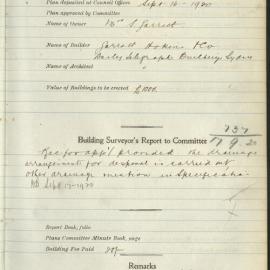 Plan deposited at Council Offices Sept. 16 - 1920
Plan approved by Committee
Name of Owner S Garrett
Name of Builder Garrett & Co
Daily Telegraph Building Sydney
Name of Architect "
Value of Buildings to be erected
Building Surveyor's Report to Committee
737
17 9. 20
Rec for app'l provided the drainage
arrangements for disposal is carried out
other drainage mention in Specification
Sept 17 - 1920
Report Book, folio
Plans Committee Minute Book, page
Building Fee Paid
Remarks